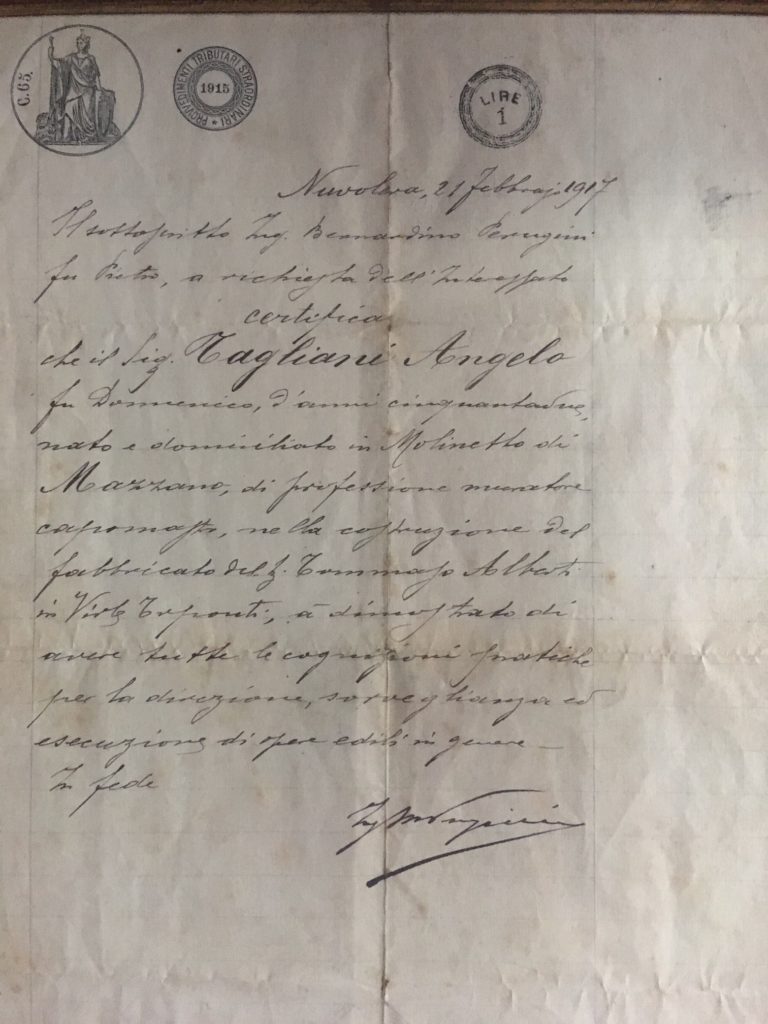 C. 65.
PROVVEDIMENTI TRIBUTARI STRAORDINARI
1915
LIRE
1
Nuvolera, 21 febbrajo 1917
Il sottoscritto Ing. Bernardino Perugini
fu Pietro, a richiesta dell'Interessato
certifica
che il Sig. Tagliani Angelo
fu Domenico, d'anni cinquantadue,
nato e domiciliato in Molinetto di
Mazzano, di professione muratore
capomastro, nella costruzione del
fabbricato del S. Tommaso Alberti
in Virle Treponti, à dimostrato di
avere tutte le cognizioni pratiche
per la direzione, sorveglianza ed
esecuzione di opere edili in genere
In fede
Ing